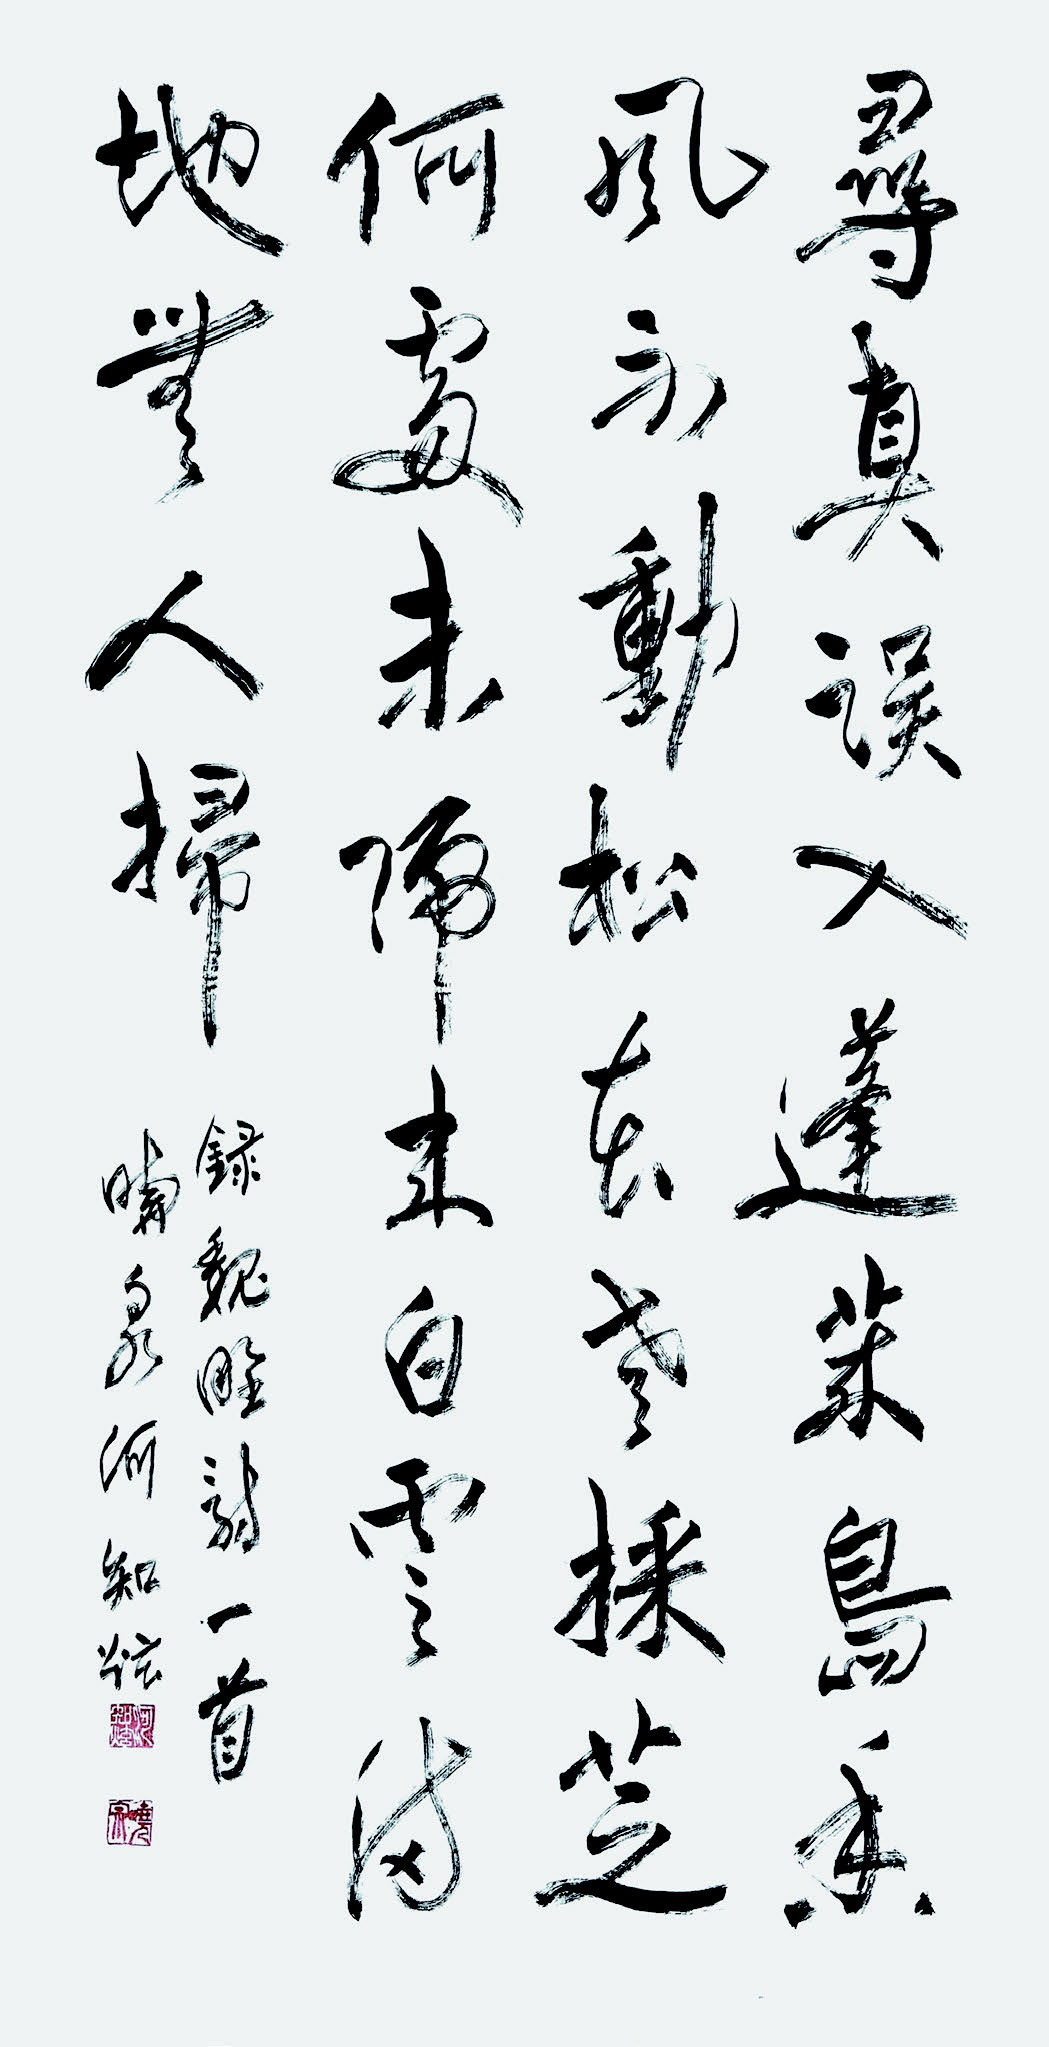 尋真誤入蓬萊島香
風不動松花老採芝
何處未歸來白雲滿
地無人掃
錄魏野詩一首
曉泉何知炫